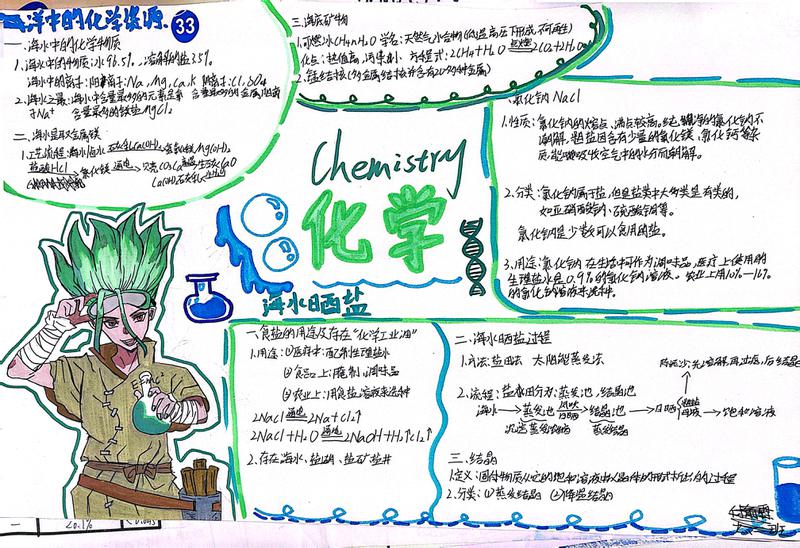 海洋中的化学资源
33
一、海水中的化学物质
1.海水中的物质:水96.5%,溶解的盐3.5%
海水中的离子:阳离子:Na,Mg,Ca,K 阴离子:Cl,SO4
2.海水之最:海水中含量最多的元素是氧 含量最多的金属阳离
子Na⁺ 含量最多的
MgCl₂
二、海水提取金属镁
1.工艺流程:海水
Mg(OH)₂
盐酸HCl 氯化镁 通电
三、海底矿物
1.可燃冰CH₄·nH₂O 学名:天然气水合物(低温高压下形成,不可再生)
优点:热值高,污染小,方程式:2CH₄+H₂O 点燃 2CO₂+2H₂O
2.锰结核(多金属结核并含有20多种金属)
一、氯化钠NaCl
1.性质:氯化钠的熔点、沸点较高。纯
的氯化钠不
潮解,粗盐因含有少量的氯化镁、氯化钙等杂
质,能吸收空气中的水分而潮解。
2.分类:氯化钠属于盐,但盐类中大多数是有毒的,
如亚硝酸钠、硫酸铜等。
氯化钠是少数可以食用的盐。
3.用途:氯化钠在生活中可作为调味品,医疗上使用的
生理盐水是0.9%的氯化钠溶液。农业上用10%—16%
的氯化钠溶液来选种。
Chemistry
化学
海水晒盐
一、食盐的用途及存在“化学工业
1.用途:①医疗中:配制生理盐水
②食品上:腌制、调味品
③农业上:用食盐溶液来选种
2NaCl 通电 2Na+Cl₂↑
2NaCl+H₂O 通电 2NaOH+H₂↑Cl₂↑
2.存在海水、盐湖、盐矿盐井
二、海水晒盐过程
1.方法:盐田法 太阳能蒸发法
2.流程:盐田分为:蒸发池,结晶池
海水→蒸发池 风吹日晒→结晶池→日晒
母液→饱和溶液
三、结晶
1.定义:固体物质从它的饱和溶液中以晶体的形式析出的过程
2.分类:①蒸发结晶 ②降温结晶
<0.1%